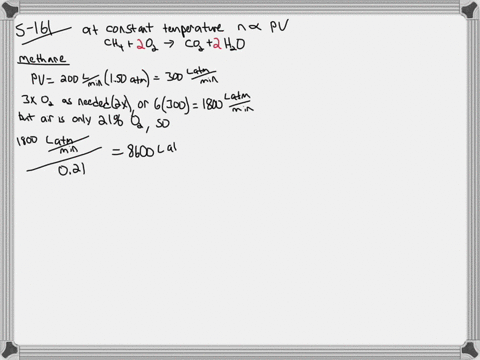 5-161 at constant temperature n ∝ PV
CH4 + 2O2 → CO2 + 2H2O
methane
PV = 200 L/min (1.50 atm) = 300 L atm/min
3x O2 as needed (2x), or 6(300) = 1800 L atm/min
but air is only 21% O2, so
1800 L atm/min / 0.21 = 8600 L at